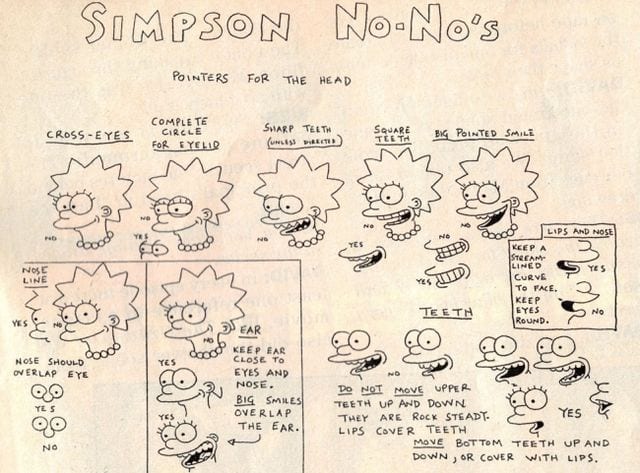 SIMPSON NO-NO'S
POINTERS FOR THE HEAD
CROSS-EYES
NO
COMPLETE
CIRCLE
FOR EYELID
NO
YES
SHARP TEETH
(UNLESS DIRECTED)
NO
SQUARE
TEETH
NO
YES
BIG POINTED SMILE
NO
NO
YES
TEETH
LIPS AND NOSE
KEEP A
STREAM-
LINED
CURVE
TO FACE.
KEEP
EYES
ROUND.
YES
NO
NOSE
LINE
YES
NO
NOSE SHOULD
OVERLAP EYE
YES
NO
NO
YES
YES
EAR
KEEP EAR
CLOSE TO
EYES AND
NOSE.
BIG SMILES
OVERLAP
THE EAR.
DO NOT MOVE UPPER
TEETH UP AND DOWN
THEY ARE ROCK STEADY.
LIPS COVER TEETH
YES
MOVE BOTTOM TEETH UP AND
DOWN, OR COVER WITH LIPS.